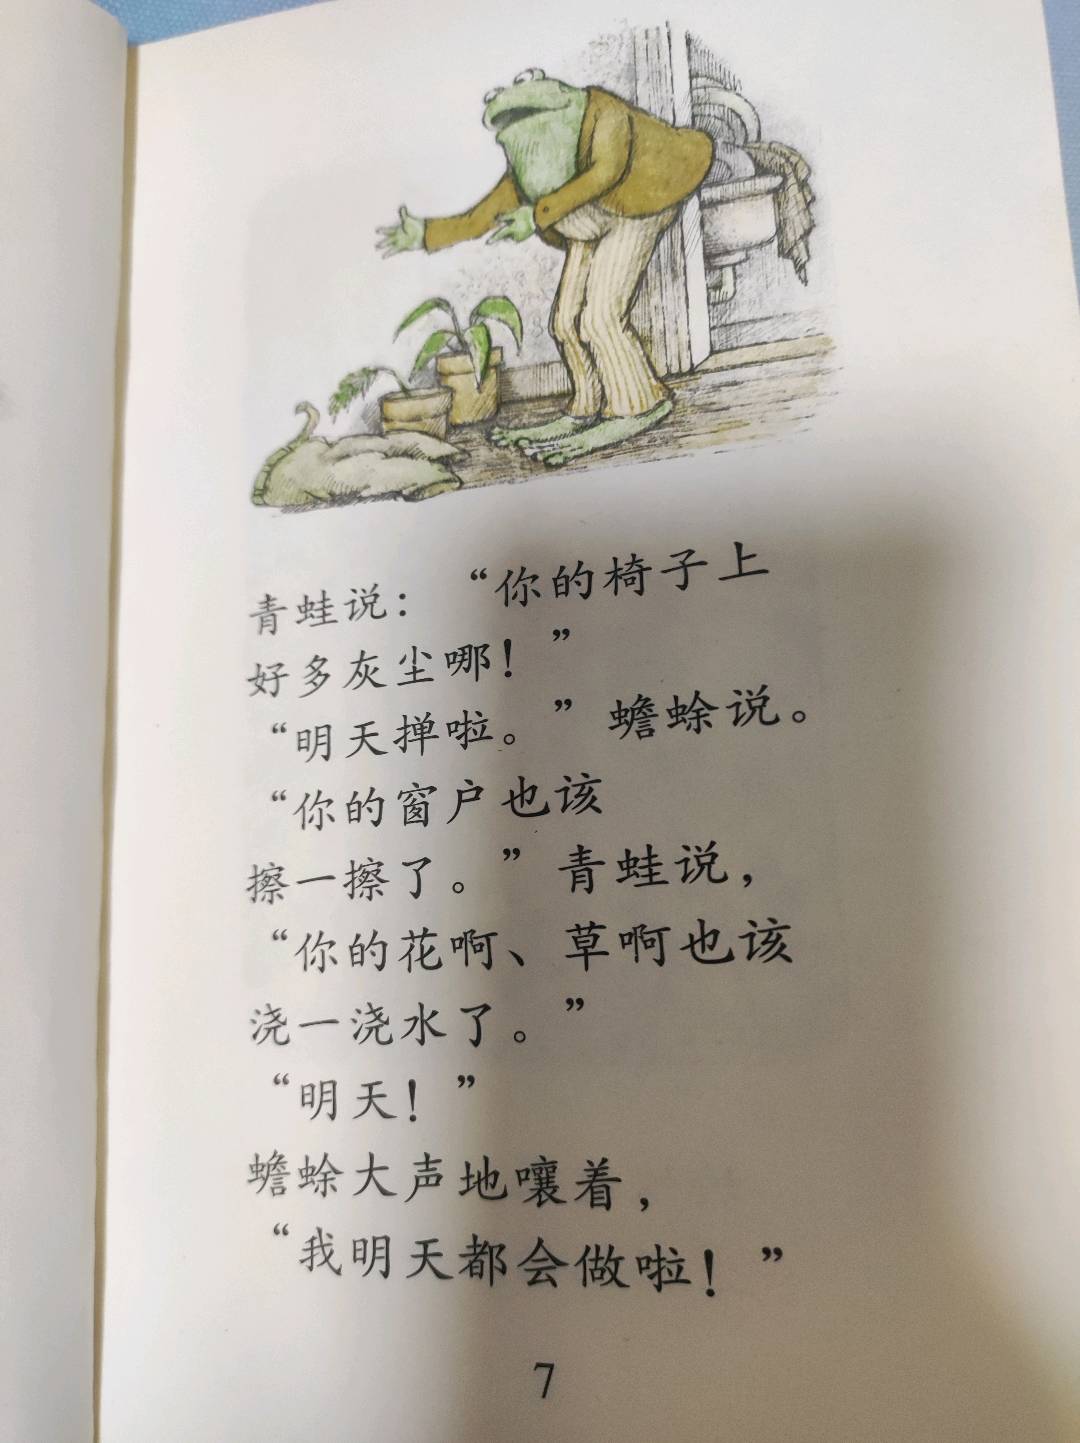 青蛙说：“你的椅子上
好多灰尘哪！”
“明天掸啦。”蟾蜍说。
“你的窗户也该
擦一擦了。”青蛙说，
“你的花啊、草啊也该
浇一浇水了。”
“明天！”
蟾蜍大声地嚷着，
“我明天都会做啦！”
7